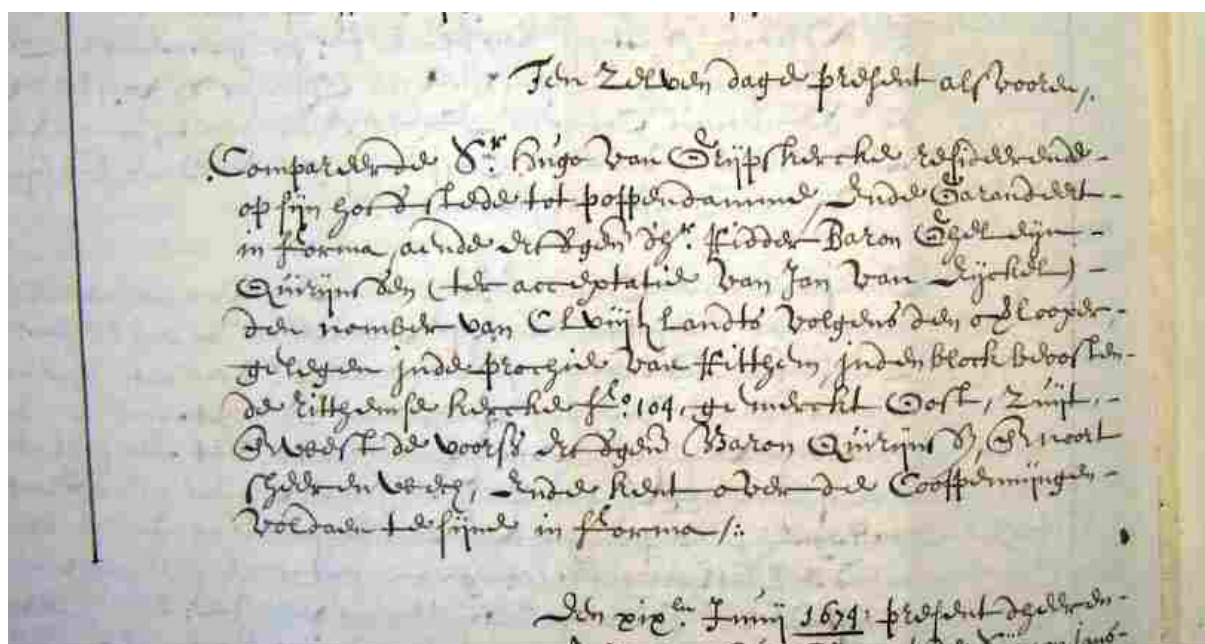 Ten zelven dage present als vooren /.
Compareerde Sr. Hugo van Grijpskercke, resideerende
op sijn hoffstede tot poppendamme, Ende Garandeert
in forma, aende erffgen dhr. Ridder Baron Ghelein
Quirijnssen (ter acceptatie van Jan van Eijckel)
den nomber van CLvij Landts volgens den overlooper,
gelegen inde prochie van Ritthem, inden block beoosten
de Ritthemse kercke fo. 104, gemerckt Oost, Zuijt,
en west de voors erffgen Baron Quirijns, en noort
sheeren wech, Ende kent over de Cooppenningen
voldaen te sijne in forma /:
Den xixen. Junij 1674: present dheeren